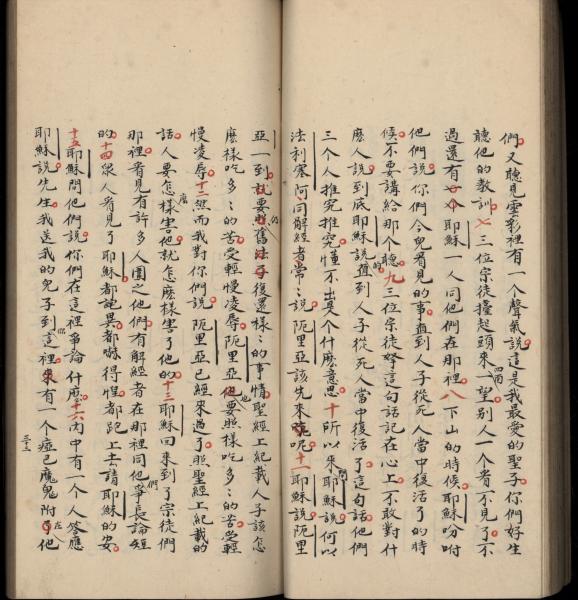 們又聽見雲彩裡有一個聲氣說這是我最愛的聖子你們好生
聽他的教訓七三位宗徒擡起頭來四面一望別人一個看不見了不
過還有耶穌一人同他們在那裡八下山的時候耶穌吩咐
他們說你們今兒看見的事直到人子從死人當中復活了的時
候不要講給那個聽九三位宗徒將這句話記在心上不敢對什
麼人說到底耶穌說直到人子從死人當中復活了這句話他們
三個人推究推究懂不出是個什麼意思十所以來問耶穌說何以
法利塞阿同解經者常常說阨里亞該先來呢十一耶穌說阨里
亞一到就要將舊法子復還樣樣的事情聖經上紀載人子該怎
麼樣吃多多的苦受輕慢凌辱阨里亞也要照樣吃多多的苦受輕
慢凌辱十二然而我對你們說阨里亞已經來過了照聖經上紀載的
話人要怎樣害他就怎麼樣害了他的十三耶穌回來到了宗徒們
那裡看見有許多人圍之他們有解經者在那裡同他們爭長論短
的十四眾人看見了耶穌都詫異都嚇得怕都跑上去請耶穌的安
十五耶穌問他們說你們在這裡爭論什麼十六內中有一個人答應
耶穌說先生我送我的兒子到這裡來有一個瘂巴魔鬼附了他
三三